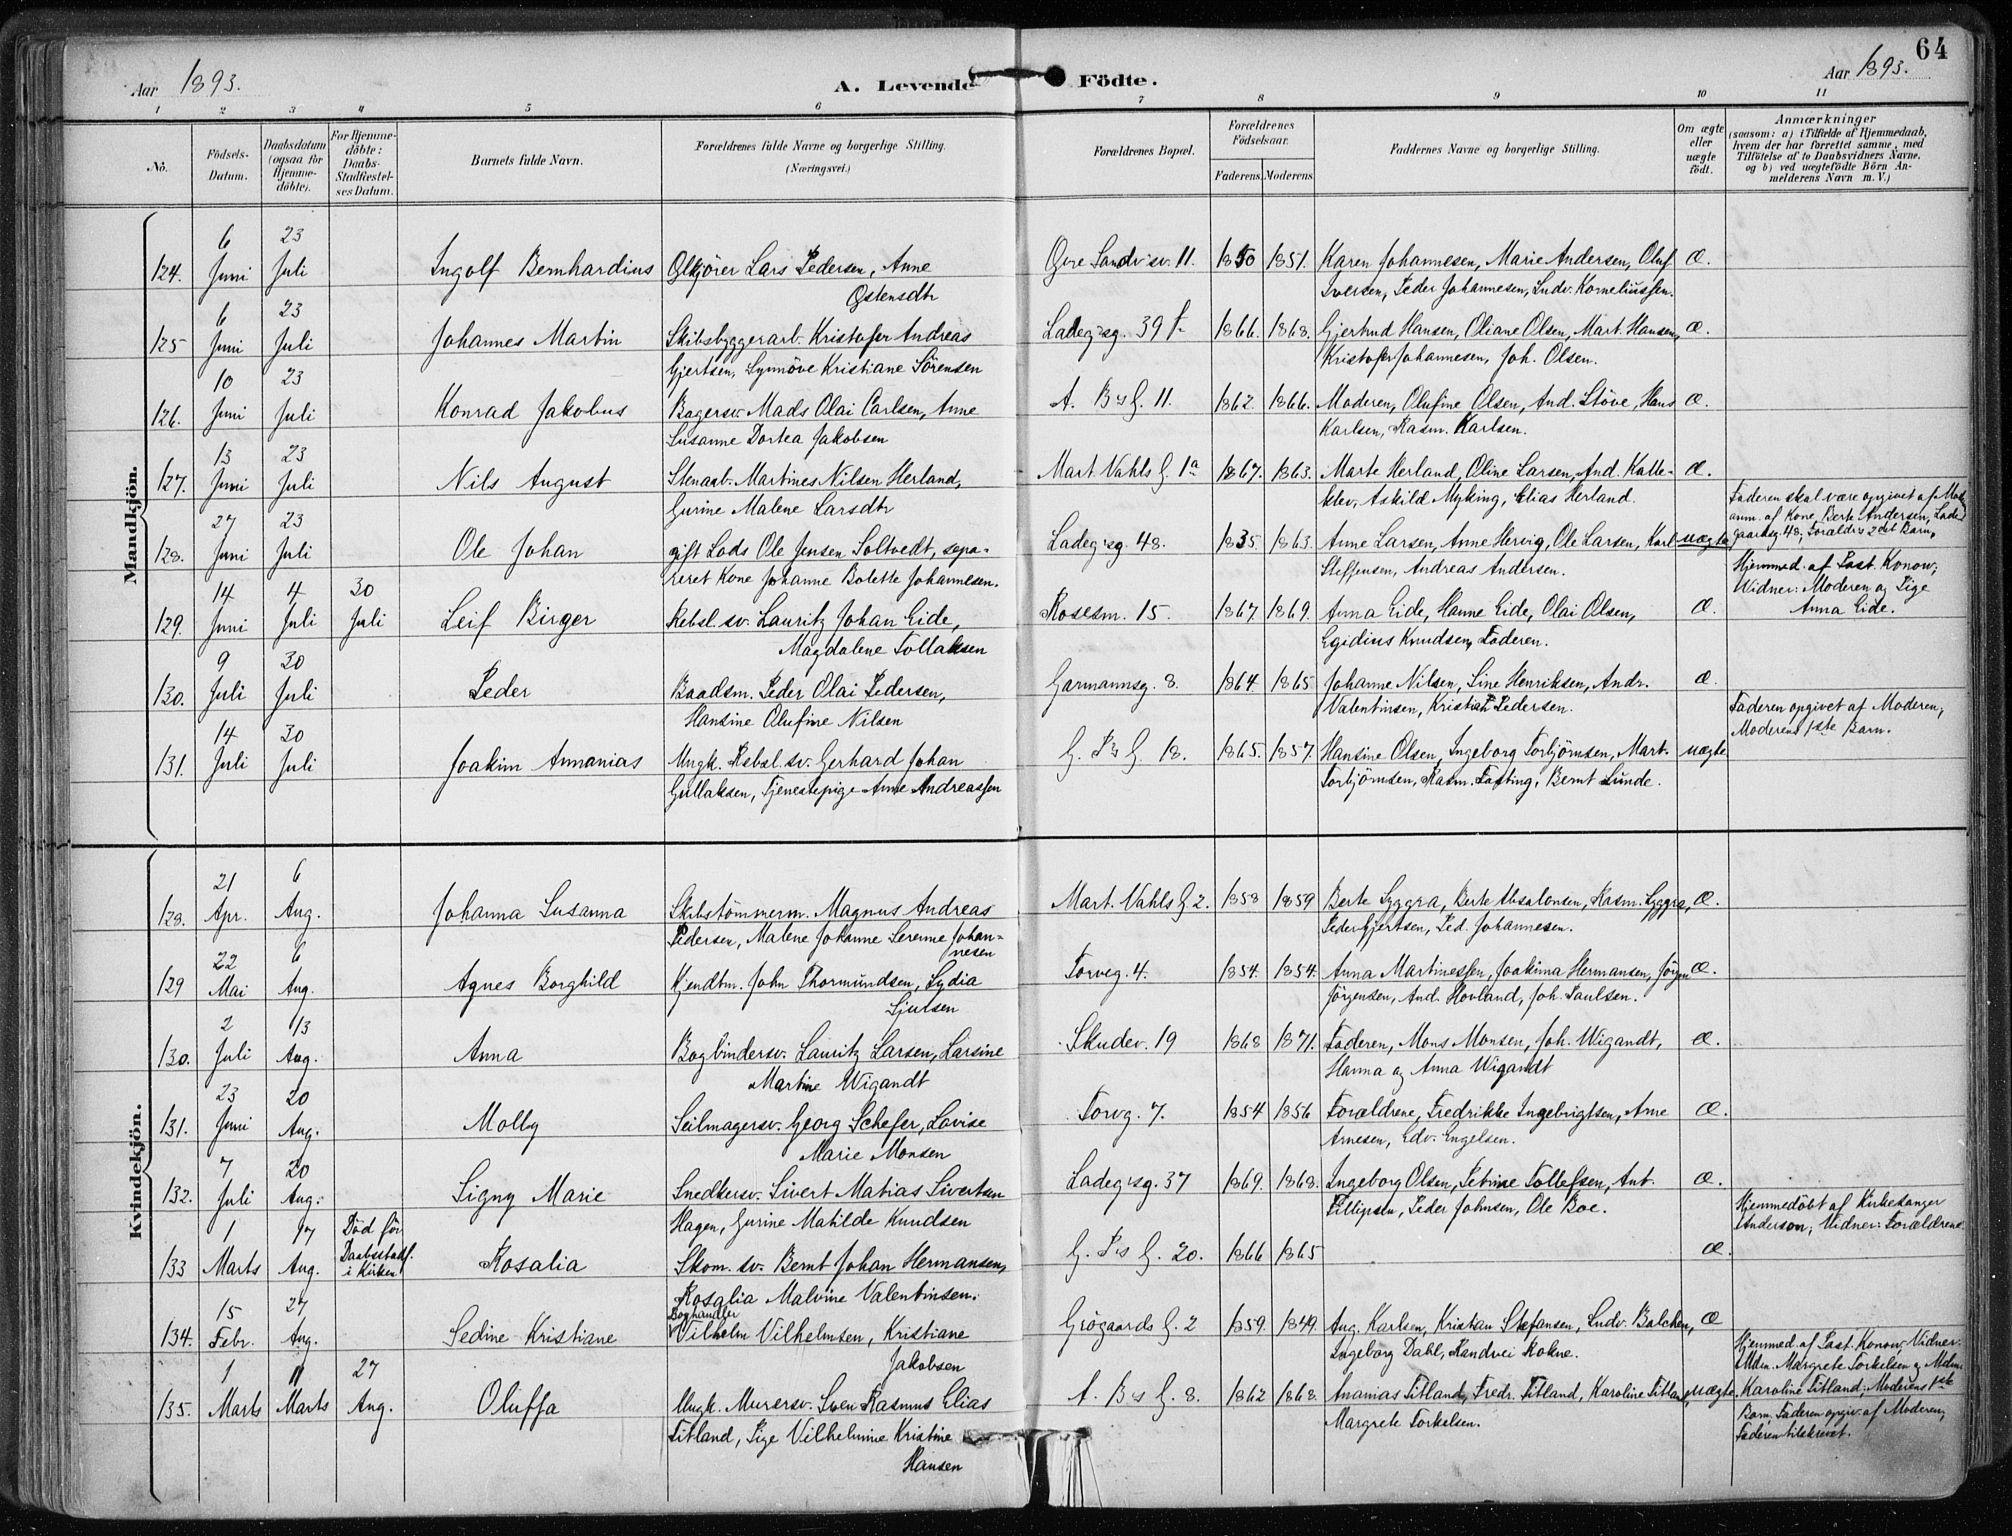 64
Aar 1893.
A. Levende Födte.
Aar 1893.
1 2 3 4 5 6 7 8 9 10 11
No.
Födsels-
Datum.
Daabsdatum
(ogsaa for
Hjemme-
döbte).
For Hjemme-
döbte:
Daabs-
Stadfæstel-
ses Datum.
Barnets fulde Navn.
Forældrenes fulde Navne og borgerlige Stilling.
(Næringsvei.)
Forældrenes Bopæl.
Forældrenes
Födselsaar.
Faderens. Moderens.
Faddernes Navne og borgerlige Stilling.
Om ægte
eller
uægte
födt.
Anmærkninger
(saasom: a) i Tilfælde af Hjemmedaab,
hvem der har forrettet samme, med
Tilföielse af to Daabsvidners Navne,
og b) ved uægtefödte Börn An-
melderens Navn m. V.)
Mandkjön.
6 23
124. Juni Juli Ingolf Bernhardius Ølkjörer Lars Pedersen, Anne Øvre Sandv.sv. 11. 1850 1851. Karen Johannesen, Marie Andersen, Oluf Æ.
Østensdtr Iversen, Peder Johannesen, Ludv. Korneliussen.
6 23
125 Juni Juli Johannes Martin Skibsbyggerarb. Kristofer Andreas Ladegsg. 39 1866. 1868. Gjertrud Hansen, Oliane Olsen, Mart. Hansen, Æ.
Gjertsen, Synnöve Kristiane Sörensen Kristofer Johannesen, Joh. Olsen.
10 23
126. Juni Juli Konrad Jakobus Bagersv. Mads Olai Carlsen, Anne A. Bs G. 11. 1862. 1866. Moderen, Olufine Olsen, And. Stöve, Hans Æ.
Susanne Dortea Jakobsen Karlsen, Rasm. Karlsen.
13 23
127. Juni Juli Nils August Stenarb. Martines Nilsen Herland, Mart. Vahls G. 1a 1867. 1863. Marte Herland, Oline Larsen, And. Kalle- Æ.
Gurine Malene Larsdtr klev, Askild Myking, Elias Herland.
27 23 Faderen skal være opgivet af Mod.
anm. af Kone Berte Andersen, Lade-
128. Juni Juli Ole Johan gift Lods Ole Jensen Soltvedt, sepa- Ladegsg. 48. 1835. 1863. Anne Larsen, Anne Hervig, Ole Larsen, Karl uægte gaardsg. 48, Forældrs 2det Barn.
reret Kone Johanne Bolette Johannesen. Steffensen, Andreas Andersen.
14 4 30 Hjemmed. af Past. Konow;
Widner: Moderen og Pige
129. Juni Juli Juli Leif Birger Rebsl. sv. Lauritz Johan Eide, Rosesm. 15. 1867. 1869. Anna Eide, Hanne Eide, Olai Olsen, Æ. Anna Eide.
Magdalene Tollaksen Egidius Knudsen, Faderen.
9 30
130. Juli Juli Peder Baadsm. Peder Olai Pedersen, Garmannsg. 8. 1864. 1865 Johanne Nilsen, Sine Henriksen, Andr. Æ.
Hansine Olufine Nilsen Valentinsen, Kristian Pedersen.
14 30 Faderen opgivet af Moderen;
Moderens 1ste Barn.
131. Juli Juli Joakim Annanias Ungk. Rebsl. sv. Gerhard Johan G. Ps G. 18. 1865. 1857. Hansine Olsen, Ingeborg Torbjörnsen, Mart. uægte
Gullaksen, Tjenestepige Anne Andreassen Torbjörnsen, Rasm. Fasting, Bernt Lunde.
Kvindekjön.
21 6
128. Apr. Aug. Johanna Susanna Skibstömmerm. Magnus Andreas Mart. Vahls G 2. 1858 1859 Berte Lyggra, Berte Absalonsen, Rasm. Lyggra, Æ.
Pedersen, Malene Johanne Serenne Johan-
nesen Peder Gjertsen, Ped. Johannesen.
22 6
129 Mai Aug. Agnes Borghild Kjendtm. John Thormundsen, Lydia Torveg. 4. 1854. 1854. Anna Martinessen, Joakima Hermansen, Jörgen Æ.
Sjursen Jörgensen, And. Hovland, Joh. Paulsen.
2 13
130. Juli Aug. Anna Bogbindersv. Lauritz Larsen, Larsine Skudev. 19 1868 1871. Faderen, Mons Monsen, Joh. Wigandt, Æ.
Martine Wigandt Hanna og Anna Wigandt
23 20
131. Juni Aug. Molly Seilmagersv. Georg Schefer, Lovise Torvg. 7. 1854 1856 Forældrene, Fredrikke Ingebrigtsen, Arne Æ.
Marie Monsen Arnesen, Edv. Engelsen.
7 20
132. Juli Aug. Signy Marie Snedkersv. Sivert Matias Sivertsen Ladegsg. 37 1869. 1868. Ingeborg Olsen, Petrine Tollefsen, Ant. Æ.
Hagen, Gurine Matilde Knudsen Fillipsen, Peder Johnsen, Ole Boe.
1 17 Död för
Daabsstadf.
i Kirken Hjemmedöbt af Kirkesanger
Anderson; Vidner: Forældrene
133 Marts Aug. Rosalia Skom. sv. Bernt Johan Hermansen, G. Ps G. 20. 1866 1865 Æ.
Rosalia Malvine Valentinsen.
15 27 Boghandler
134. Febr. Aug. Sedine Kristiane Vilhelm Vilhelmsen, Kristiane Grögaards G. 2 1859. 1849. Aug. Karlsen, Kristian Stefansen, Ludv. Balchen, Æ
Jakobsen Ingeborg Dahl, Randvei Rokne.
1 11 27 Hjemmed. af Past. Konow; Vidner:
Mdm. Margrete Torkelsen og Mdm.
135. Marts Marts Aug. Oluffa Ungk. Murersv. Sven Rasmus Elias A. Bs G. 8. 1862 1868. Ananias Titland, Fredr. Titland, Karoline Titland, uægte. Karoline Titland; Moderens 1ste
Titland, Pige Vilhelmine Kristine Margrete Torkelsen. Barn, Faderen opgiv. af Moderen;
Hansen Faderen tilskrevet.